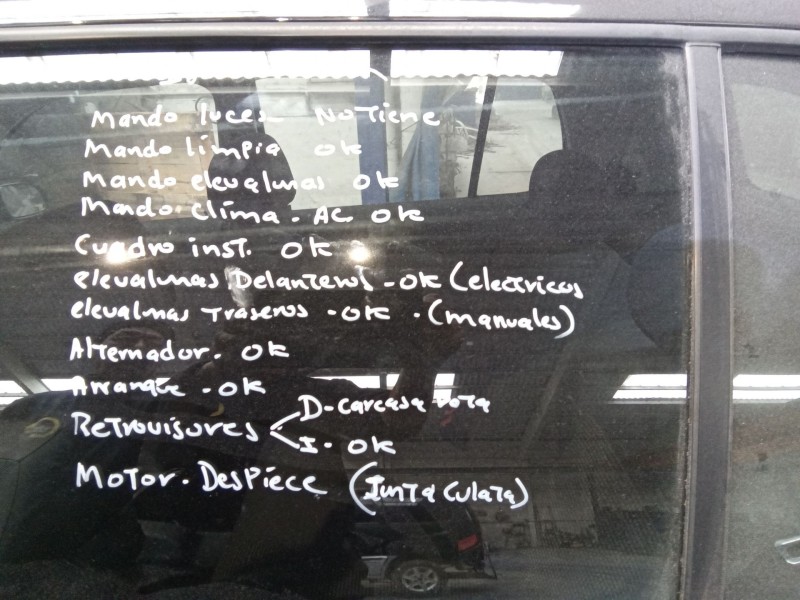 Mando luces - No Tiene
Mando limpia ok
Mando elevalunas ok
Mando. clima. AC ok
Cuadro inst. ok
elevalunas Delanteros - ok (electricos
elevalunas Traseros - ok. (manuales)
Alternador. ok
Arranque - ok
D- carcasa rota
Retrovisores
I- ok
Motor. Despiece (Junta culata)